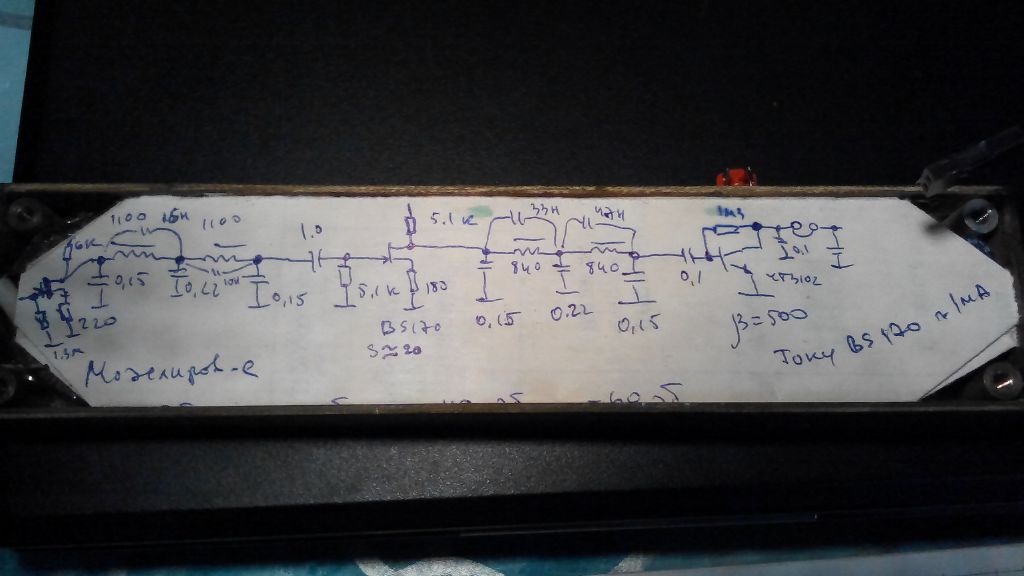 1100 15н 1100
1.0
5.1к
33н
47н
1м3
6к
0,15
0,22
10н
0,15
5,1к
180
840
840
0,1
0,1
КТ3102
220
1.3к
BS170
S≈20
0.15
0.22
0,15
β=500
Моделиров-е
Токи BS170 ≈1мА